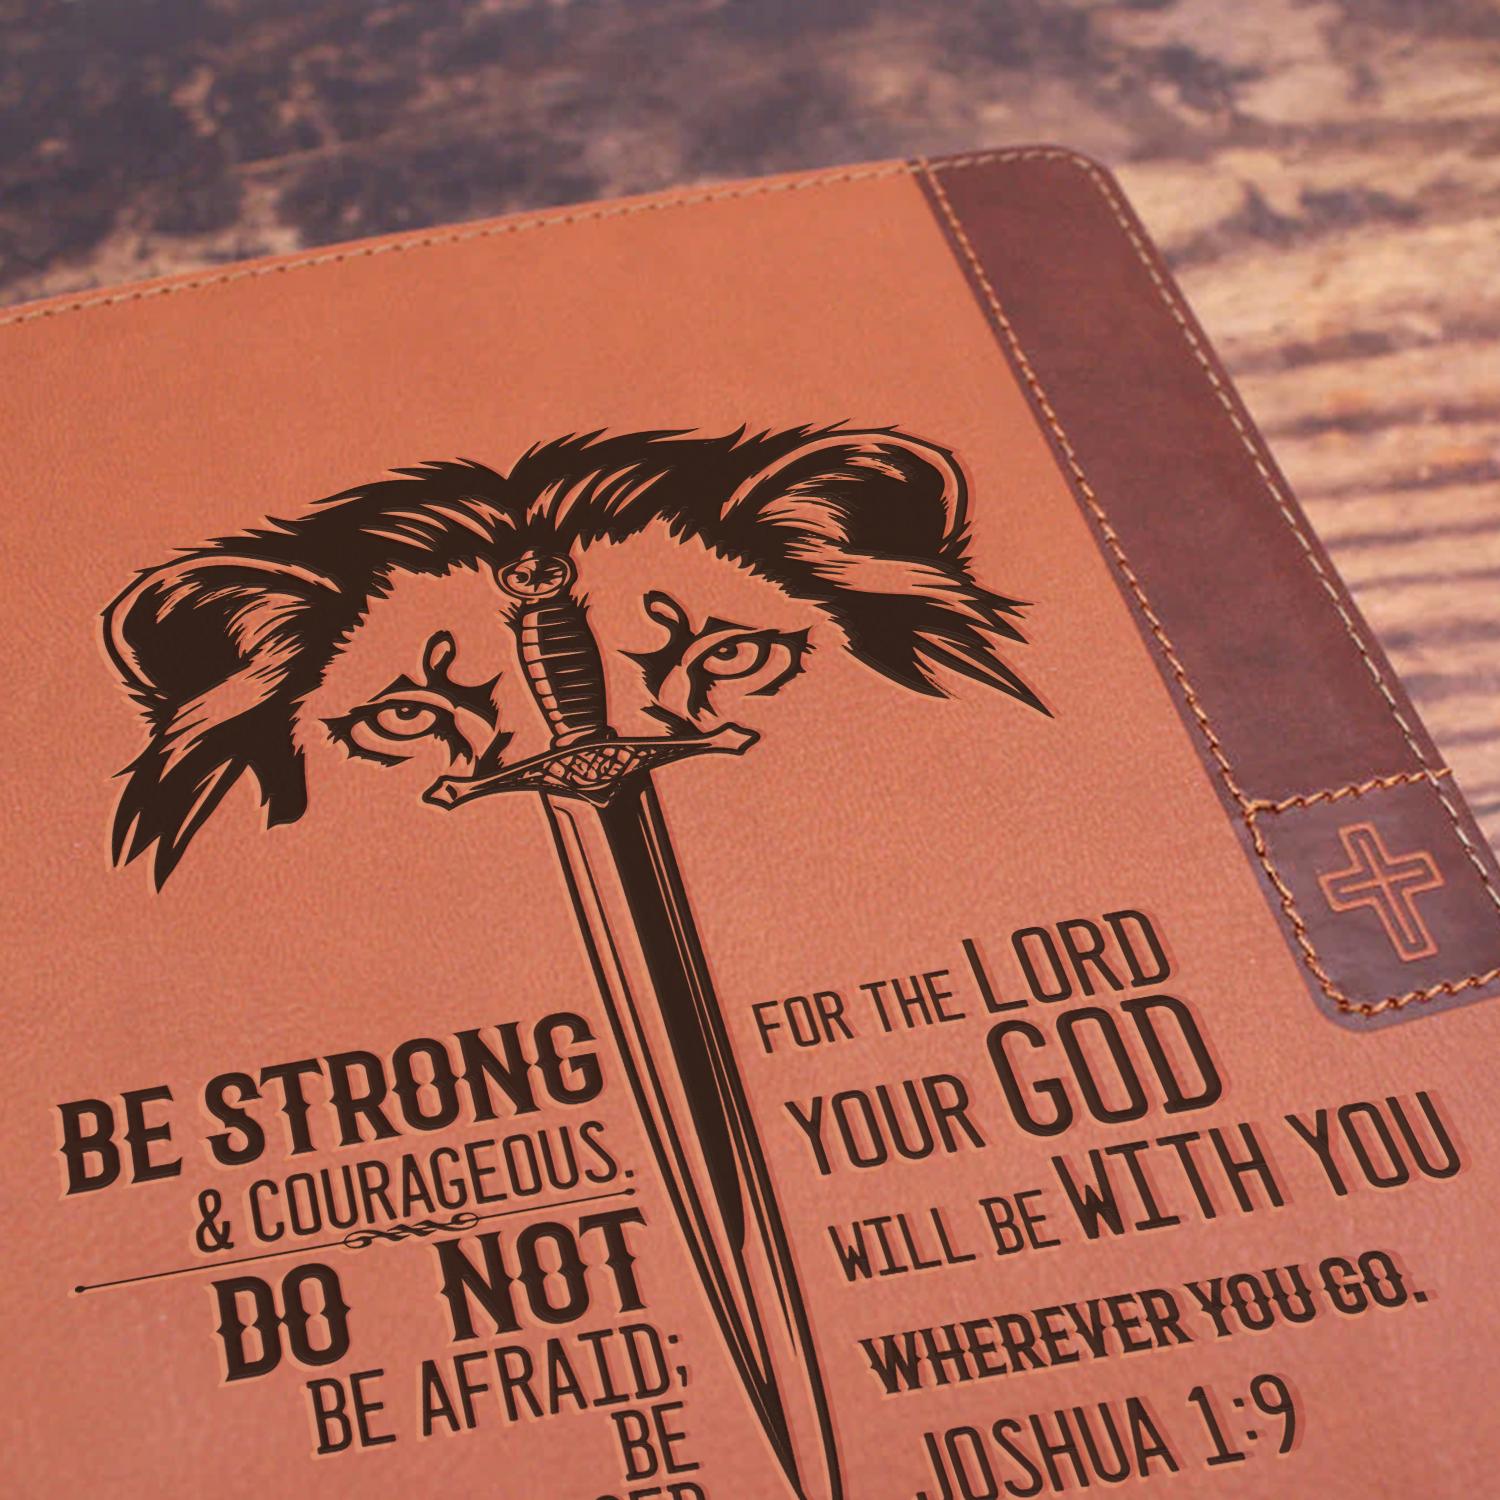 BE STRONG
& COURAGEOUS.
DO NOT
BE AFRAID;
BE
FOR THE LORD
YOUR GOD
WILL BE WITH YOU
WHEREVER YOU GO.
JOSHUA 1:9